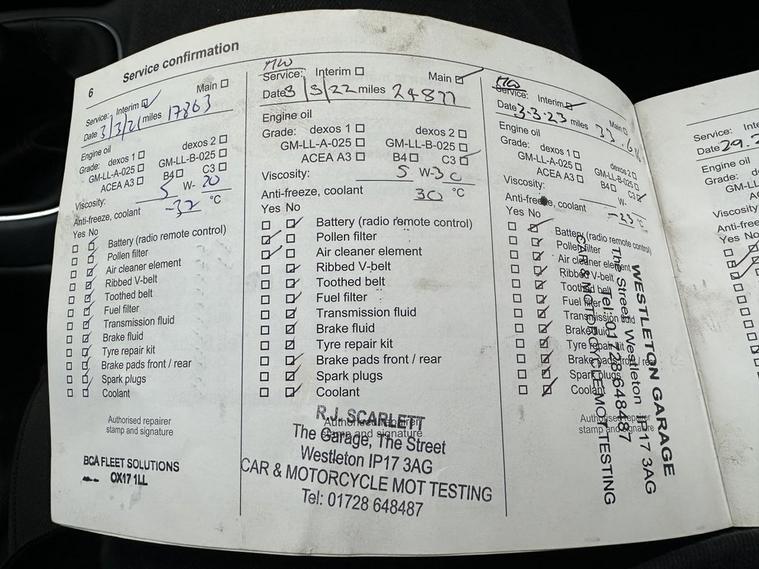 6 Service confirmation
Service: Interim Main
Date 3/3/21 miles 17863
Engine oil
Grade: dexos 1 dexos 2
GM-LL-A-025 GM-LL-B-025
ACEA A3 B4 C3
Viscosity: 5 W- 20
Anti-freeze, coolant -32 °C
Yes No
Battery (radio remote control)
Pollen filter
Air cleaner element
Ribbed V-belt
Toothed belt
Fuel filter
Transmission fluid
Brake fluid
Tyre repair kit
Brake pads front / rear
Spark plugs
Coolant
Authorised repairer
stamp and signature
BCA FLEET SOLUTIONS
OX17 1LL
Service: Interim Main
Date 3/3/22 miles 24877
Engine oil
Grade: dexos 1 dexos 2
GM-LL-A-025 GM-LL-B-025
ACEA A3 B4 C3
Viscosity: 5 W-30
Anti-freeze, coolant 30 °C
Yes No
Battery (radio remote control)
Pollen filter
Air cleaner element
Ribbed V-belt
Toothed belt
Fuel filter
Transmission fluid
Brake fluid
Tyre repair kit
Brake pads front / rear
Spark plugs
Coolant
Authorised repairer
stamp and signature
R.J. SCARLETT
The Garage, The Street
Westleton IP17 3AG
CAR & MOTORCYCLE MOT TESTING
Tel: 01728 648487
Service: Interim Main
Date 3.3.23 miles
Engine oil
Grade: dexos 1 dexos 2
GM-LL-A-025 GM-LL-B-025
ACEA A3 B4 C3
Viscosity: W-
Anti-freeze, coolant °C
Yes No
Battery (radio remote control)
Pollen filter
Air cleaner element
Ribbed V-belt
Toothed belt
Fuel filter
Transmission fluid
Brake fluid
Tyre repair kit
Brake pads front / rear
Spark plugs
Coolant
Authorised repairer
stamp and signature
WESTLETON GARAGE
The Street, Westleton IP17 3AG
Tel: 01728 648487
CAR & MOTORCYCLE MOT TESTING
Service: Inte
Date 29.
Engine oil
Grade: d
GM-LL
AC
Viscosity
Anti-free
Yes No